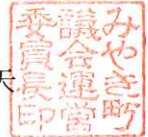 みやき町
議会運營
委員長印
天